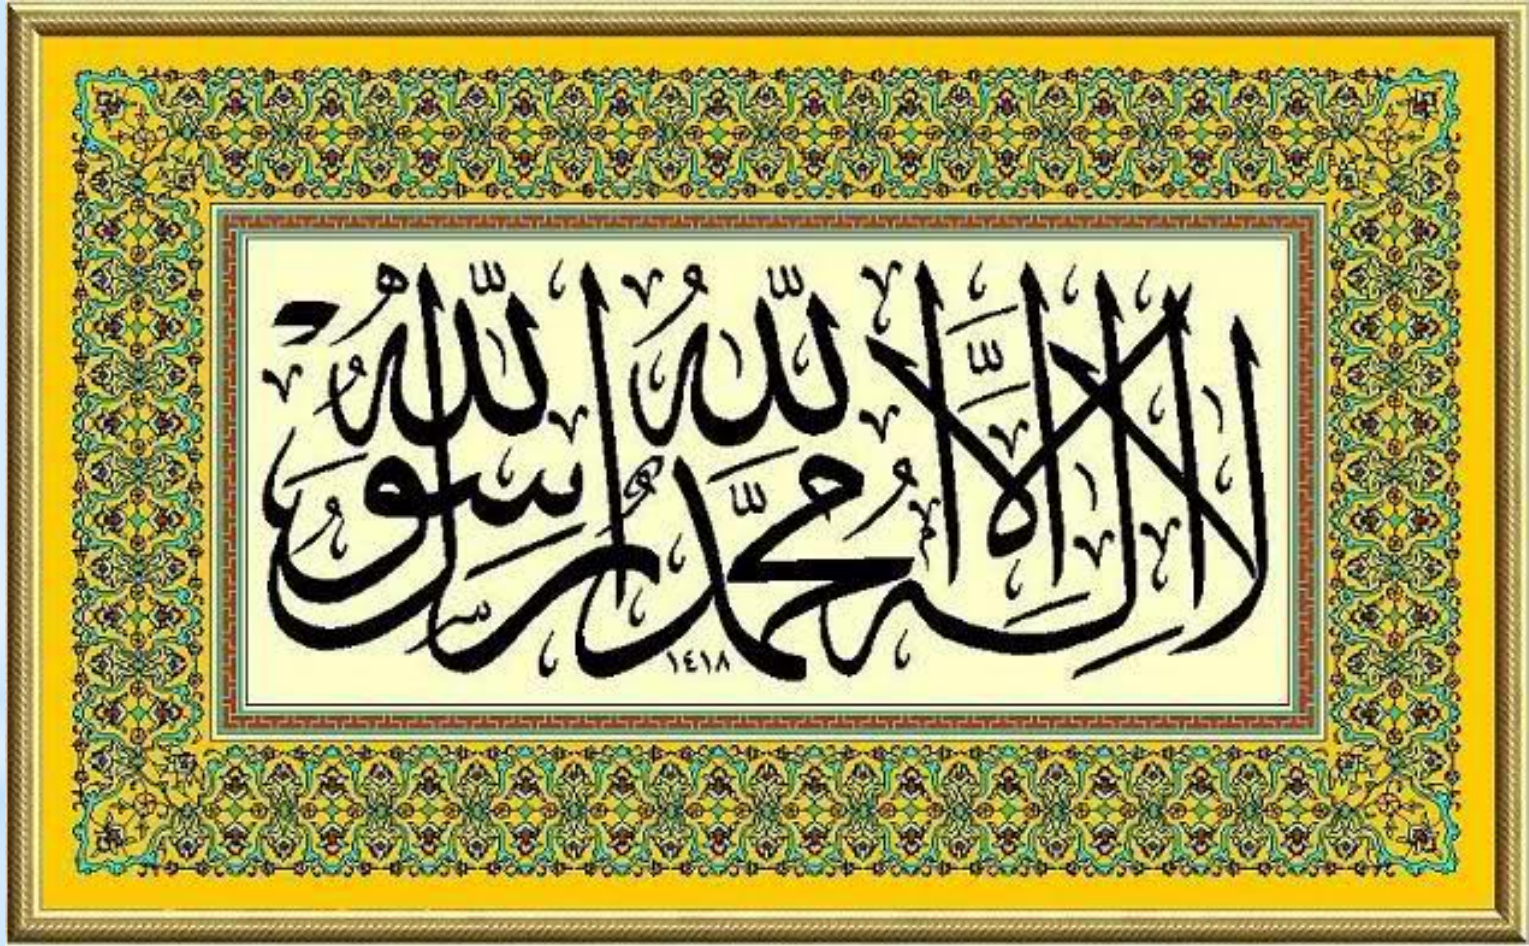 لا إله إلا الله محمد رسول الله
١٤١٨